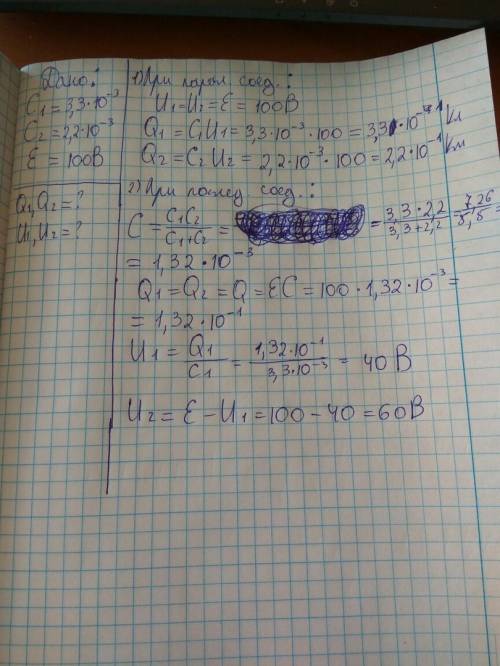 Дано:
C₁ = 3,3·10⁻³
C₂ = 2,2·10⁻³
Ɛ = 100В
Q₁, Q₂ = ?
U₁, U₂ = ?
1) При парал. соед.:
U₁ = U₂ = Ɛ = 100В
Q₁ = C₁U₁ = 3,3·10⁻³·100 = 3,3·10⁻¹ Кл
Q₂ = C₂U₂ = 2,2·10⁻³·100 = 2,2·10⁻¹ Кл
2) При послед. соед.:
C = C₁C₂/C₁+C₂ = = 3,3·2,2/3,3+2,2 = 7,26/5,5 =
= 1,32·10⁻³
Q₁ = Q₂ = Q = ƐC = 100·1,32·10⁻³ =
= 1,32·10⁻¹
U₁ = Q₁/C₁ = 1,32·10⁻¹/3,3·10⁻³ = 40В
U₂ = Ɛ − U₁ = 100 − 40 = 60В